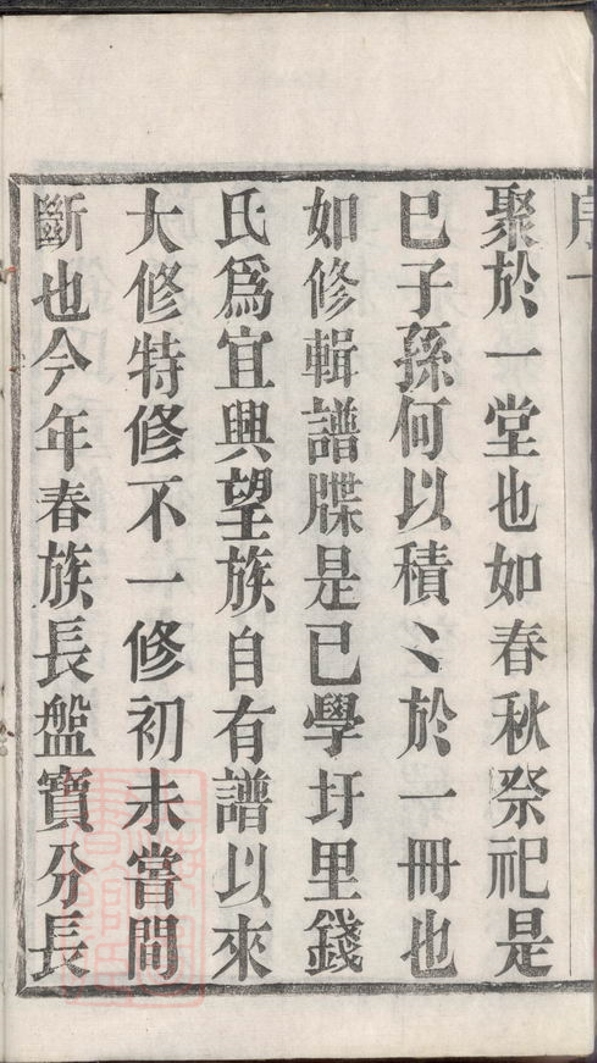 序一
聚於一堂也如春秋祭祀是
已子孫何以積〻於一冊也
如修輯譜牒是已學圩里錢
氏爲宜興望族自有譜以來
大修特修不一修初未嘗間
斷也今年春族長盤寶分長